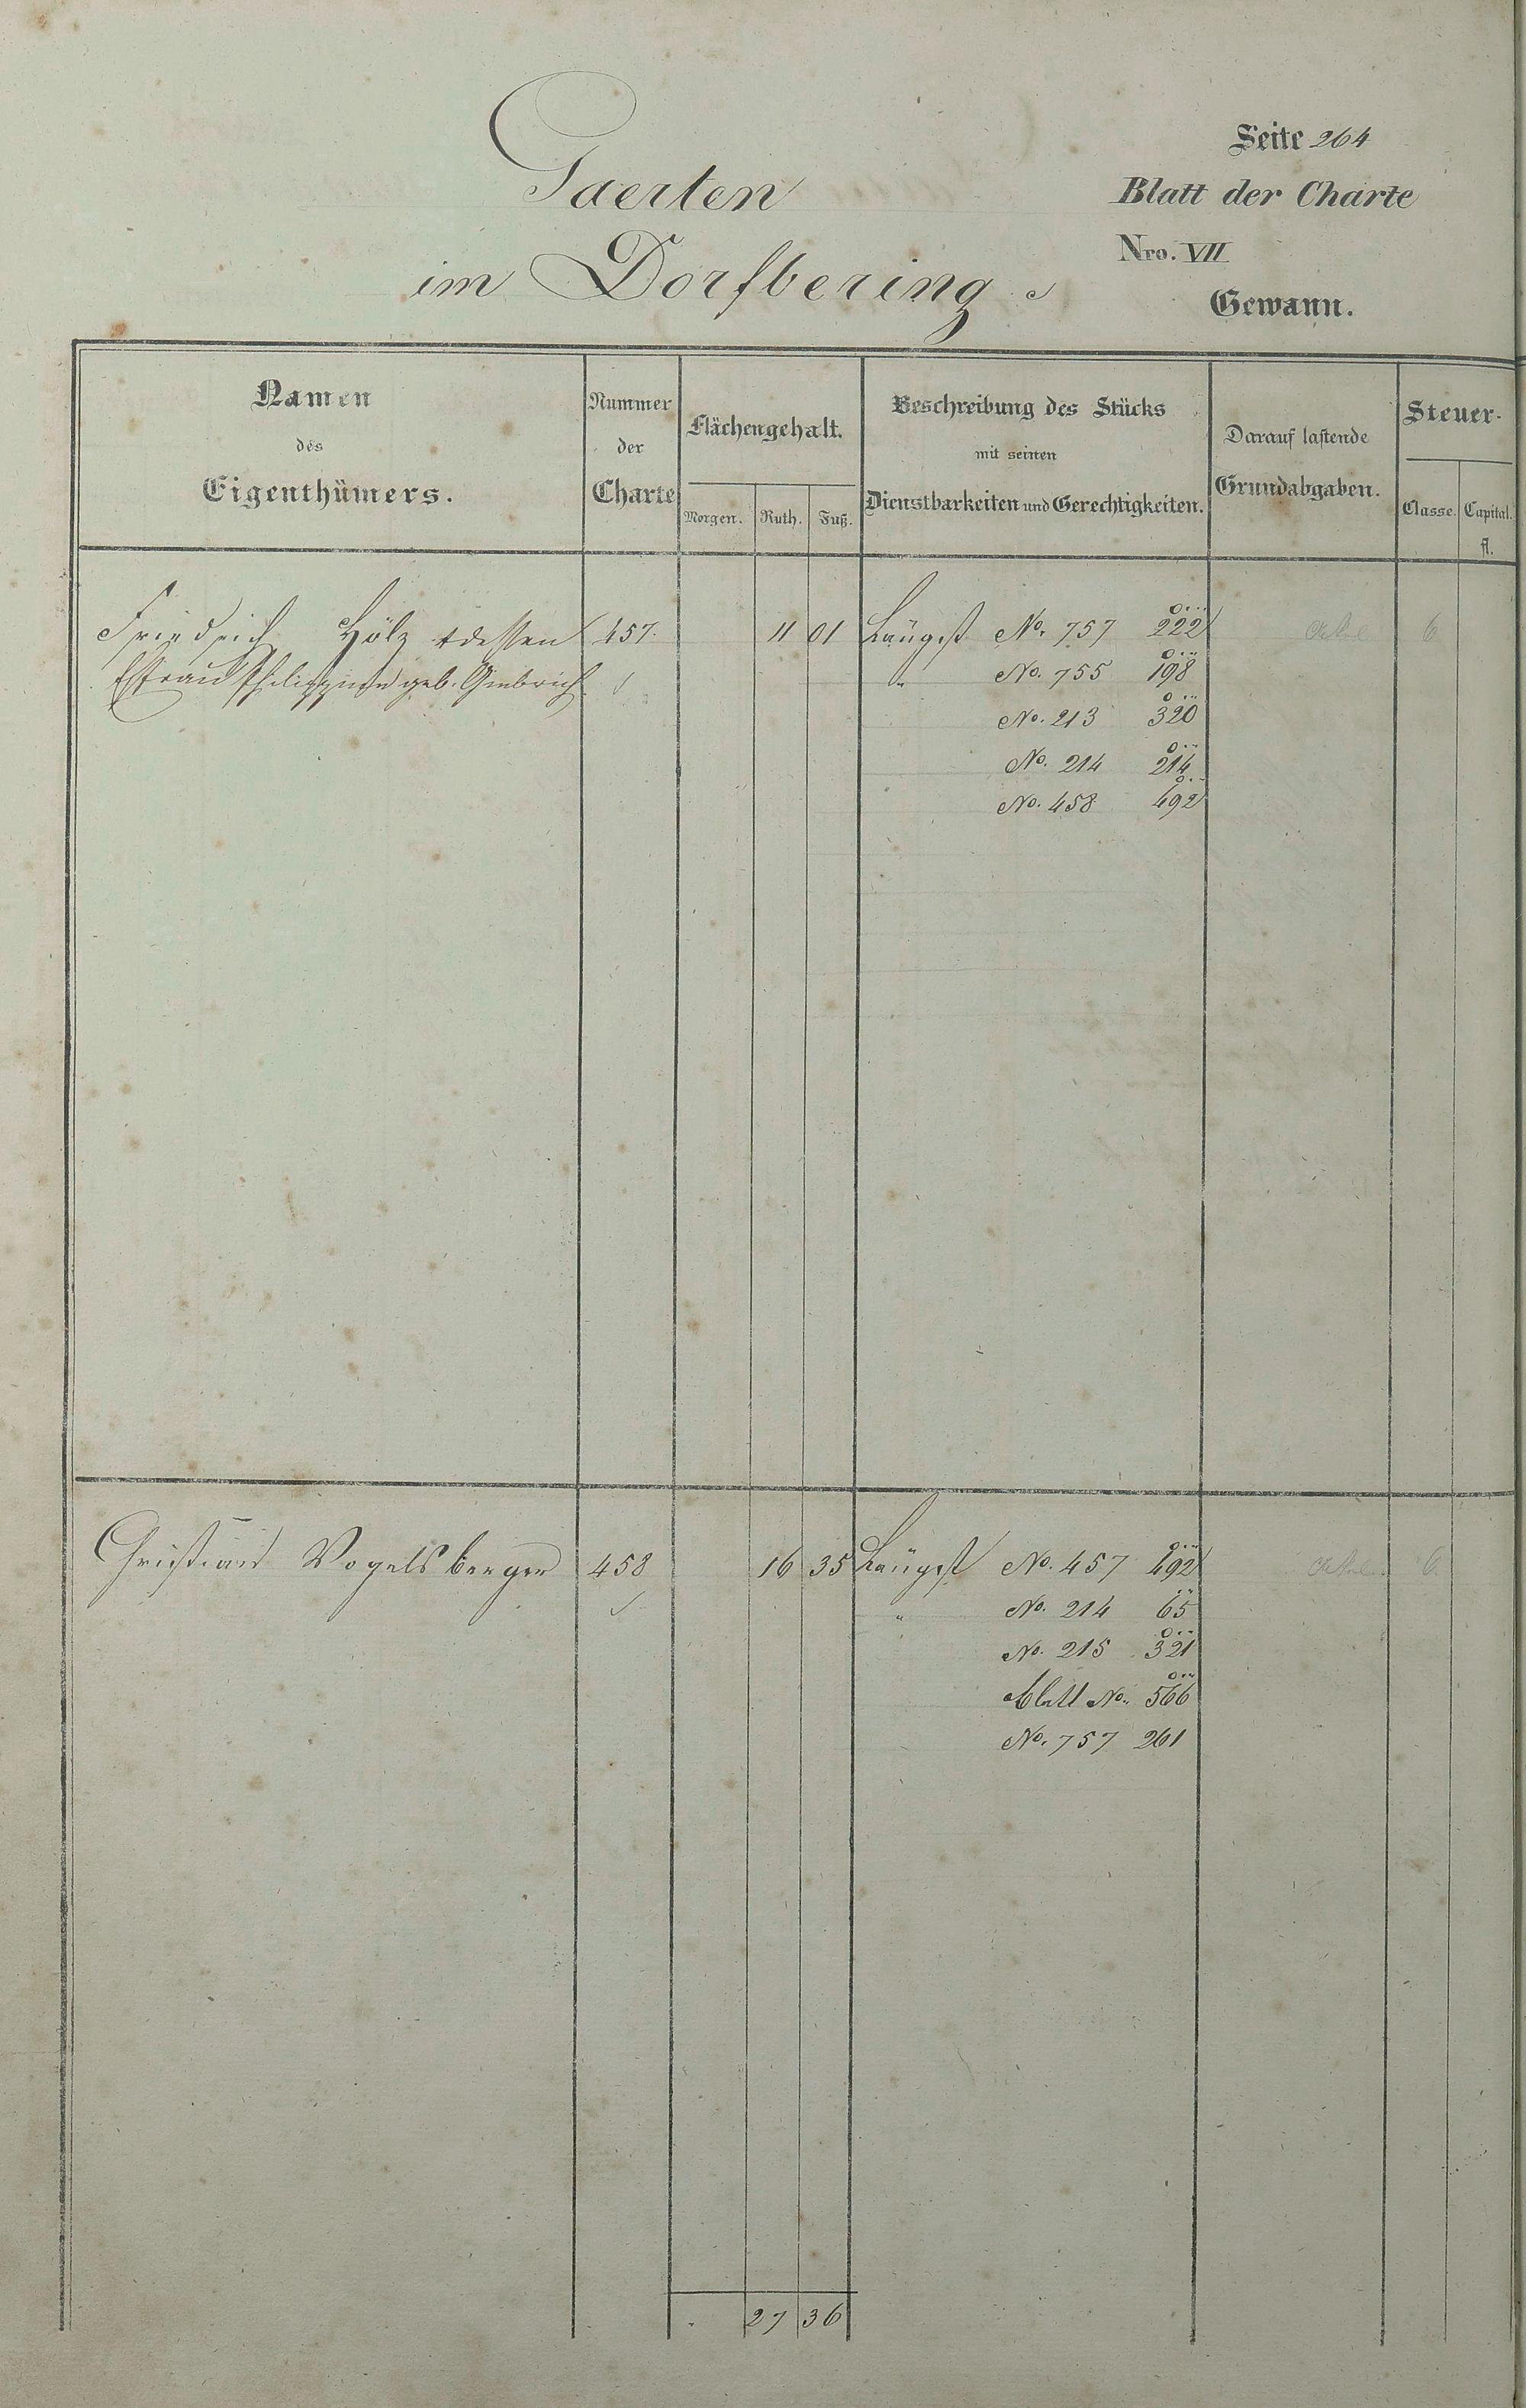 Gaerten
im Dorfbering
Seite 264
Blatt der Charte
Nro. VII
Gewann.
Namen
des
Eigenthümers.
Nummer
der
Charte
Flächengehalt.
Morgen. Ruth. Fuß.
Beschreibung des Stücks
mit seinen
Dienstbarkeiten und Gerechtigkeiten.
Darauf lastende
Grundabgaben.
Steuer-
Classe. Capital.
fl.
Friedrich Hölz + dessen 457. 11 01 Längst No. 757 222 6
Ehfrau Philippine geb. " No. 755 198
No. 213 320
No. 214 214
No. 458 492
Christian Vogelsberger 458 16 35 Längst No. 457 492 6
" No. 214 65
No. 215 321
Blatt No. 566
No. 757 261
27 36